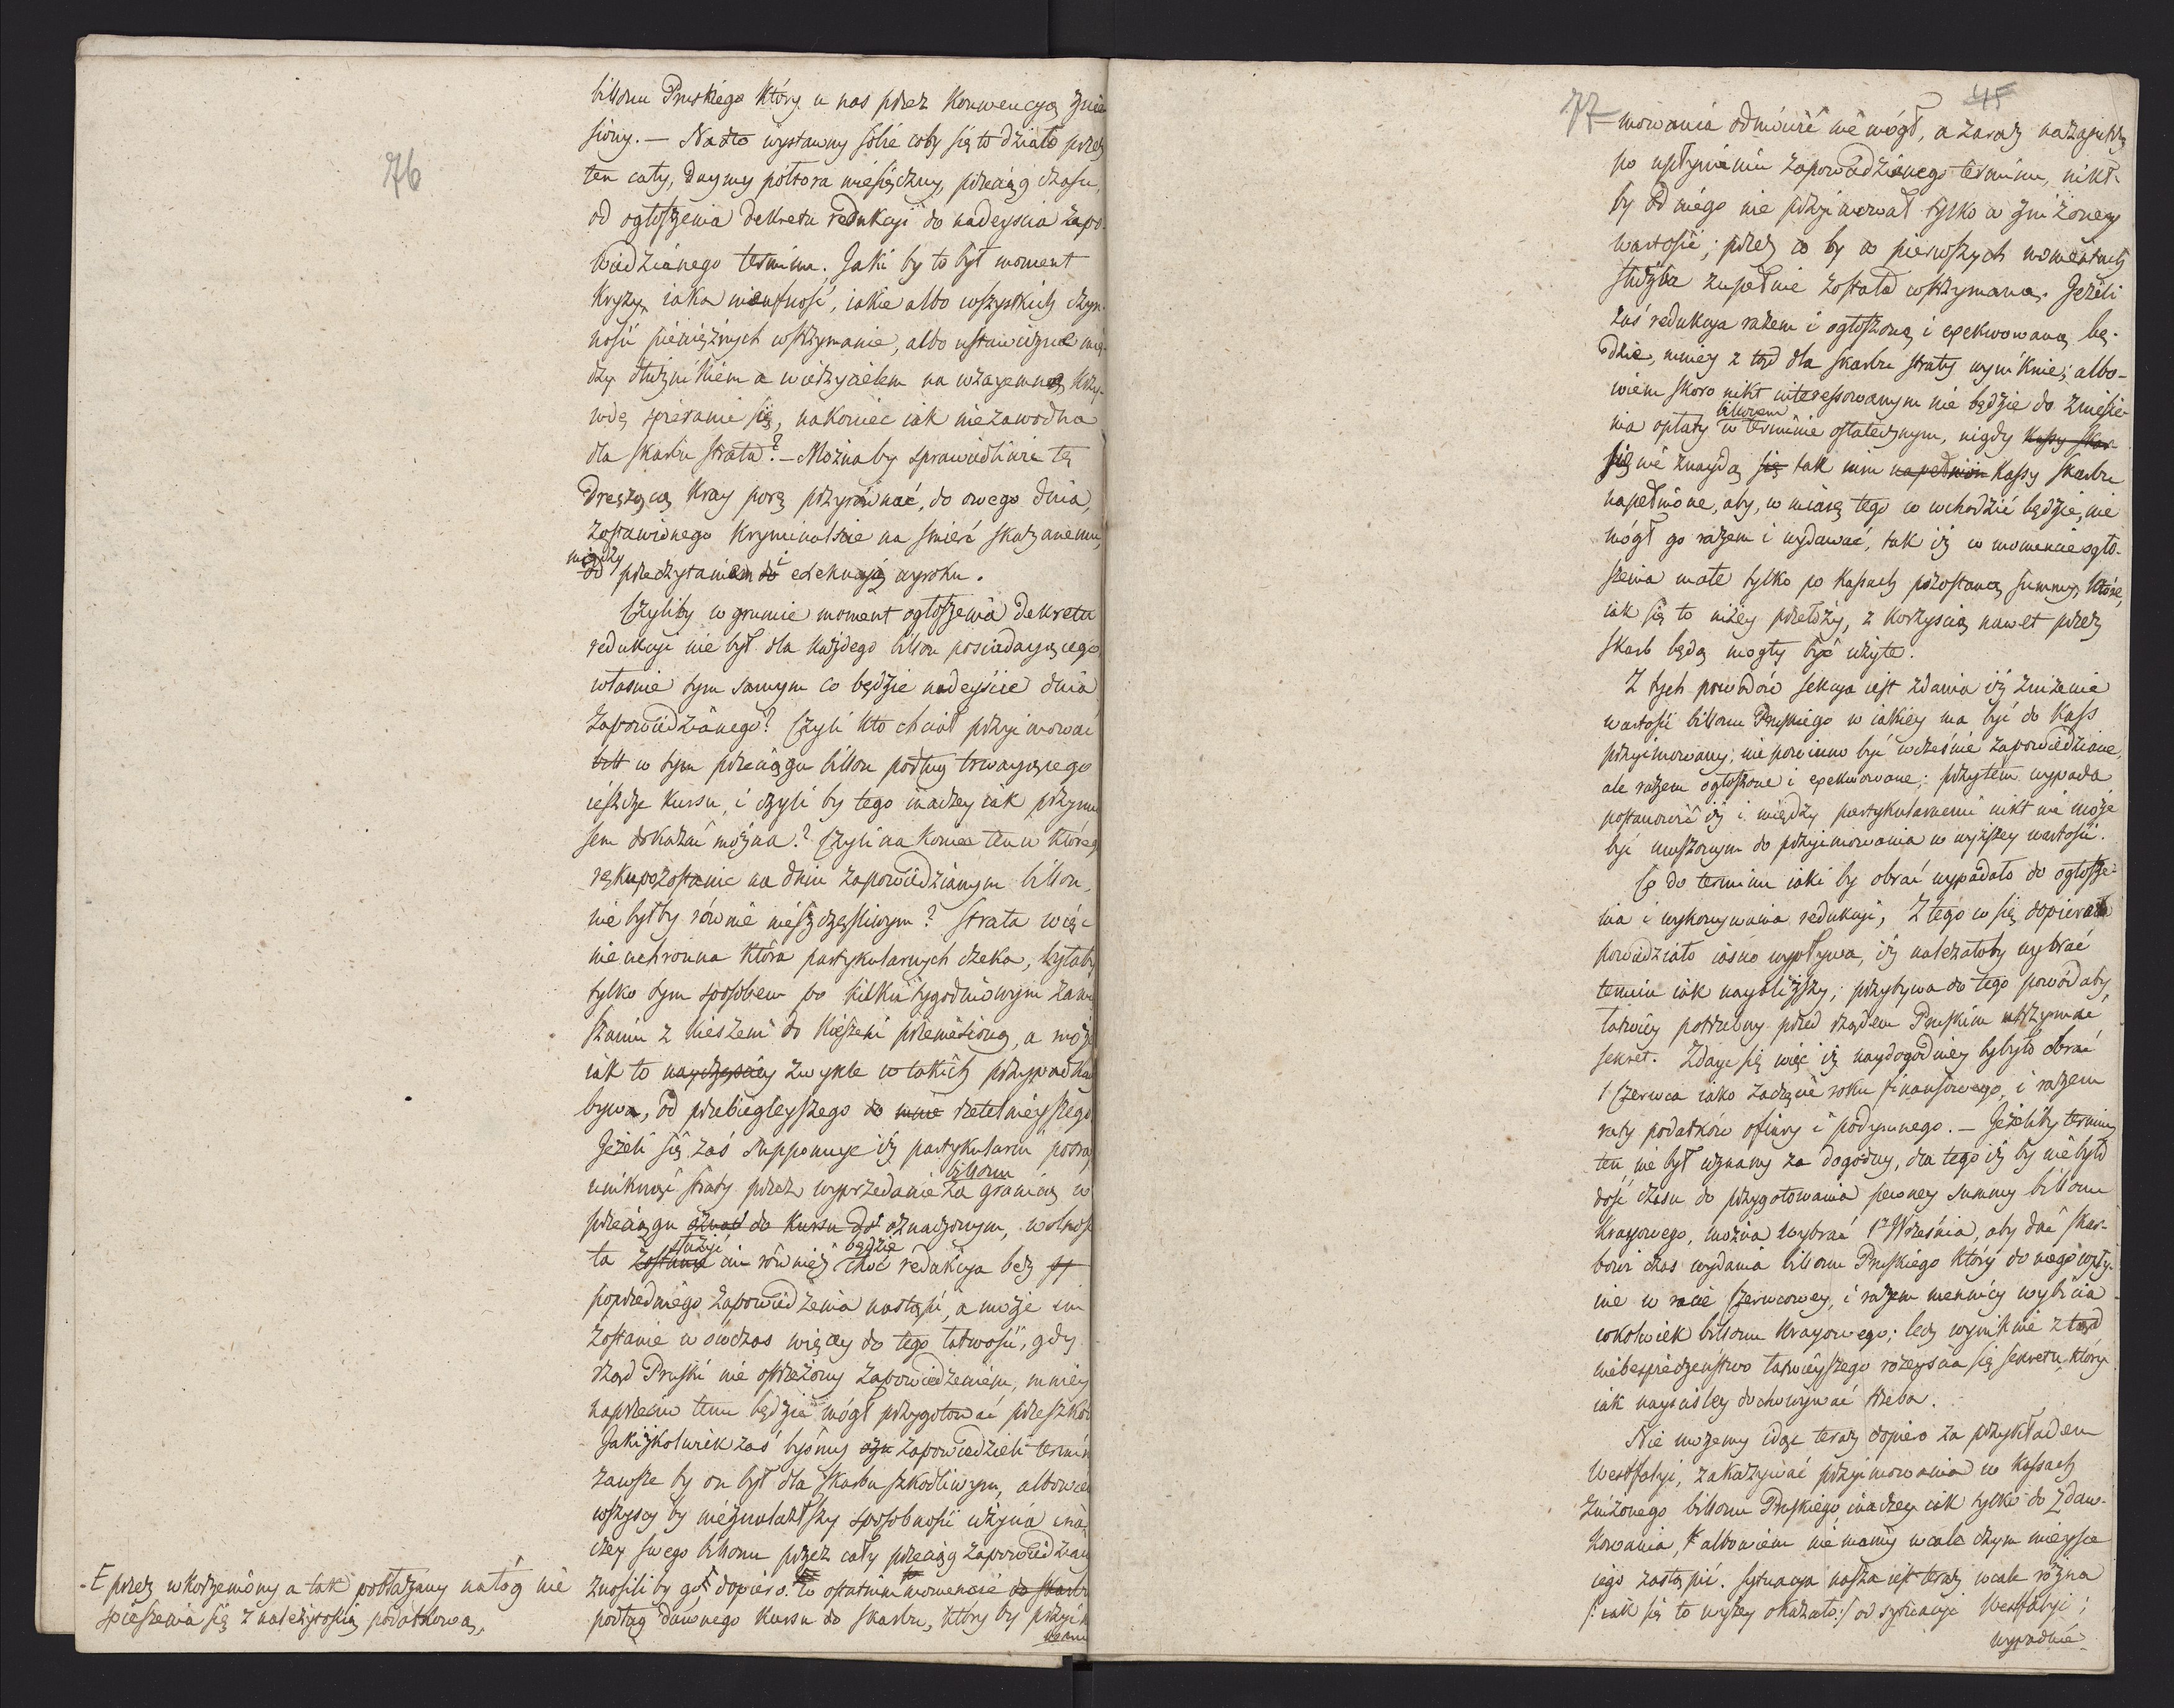 76
billonu Pruskiego który u nas przez Konwencyą znie
siony. — Nadto wystawmy sobie coby się to działo przez
ten cały, daymy półtora miesięczny, przeciąg czasu,
od ogłoszenia dekretu redukcyi do nadeyscia zapo
wiedzianego terminu. Jaki by to był moment
kryzy, iaka nieufność, iakie albo wszystkich czyn
ności pieniężnych wstrzymanie, albo ustawiczne mię
dzy dłużnikiem a wierzycielem na wzaiemną krzy
wdę spieranie się, nakoniec iak niezawodna
dla skarbu strata? — Można by sprawiedliwie tę
dręczącą kray porę przyrównać, do owego dnia,
zostawionego kryminaliście na śmierć skazanemu,
między
od przeczytaniem do i exekucyią wyroku.
Czyliby w gruncie moment ogłoszenia dekretu
redukcyi nie był dla każdego billon posiadaiącego
własnie tym samym co będzie nadeyście dnia
zapowiedzianego? Czyli kto chciał przyimować
w tym przeciągu billon podług trwaiącego
ieszcze kursu, i czyli by tego inaczey iak przymu
sem dokazać można? Czyli na koniec ten w któreg
ręku pozostanie na dniu zapowiedzianym billon,
nie byłby równie nieszczęśliwym? Strata więc
nieuchronna która partykularnych czeka, byłaby
tylko tym sposobem po kilku tygodniowym zamie
szaniu z kieszeni do kieszeni przeniesiona, a może
iak to nayczęściey zwykle w takich przypadkach
bywa, od przebiegleyszego do mnie rzetelnieyszego
Jeżeli się zaś supponuje iż partykularni potraf
billonu
uniknąć straty przez wyprzedanie za granicę w
przeciągu do kursu do oznaczonym, wolność
służyć będzie
ta zostanie im również choć redukcya bez
poprzedniego zapowiedzenia nastąpi, a może im
zostanie w owczas więcey do tego łatwości, gdy
rząd Pruski nie ostrzeżony zapowiedzeniem, mniey
naprzeciw temu będzie mógł przygotować przeszkód
Jakiżkolwiek zaś byśmy zapowiedzieli termin
zawsze by on był dla skarbu szkodliwym, albowiem
wszyscy by nieznalazłszy sposobności użycia ina
czey swego billonu przez cały przeciąg zapowiedziany
znosili by go dopiero w ostatnim momencie do skarbu
podług dawnego kursu do skarbu, który by przyi
mow
przez wkorzeniony a tak pobłażany nałóg nie
spieszenia się z należytością podatkową,
77
45
mowania odmówić nie mógł, a zaraz nazaiutrz
po upłynieniu zapowiedzianego terminu, nikt
by od niego nie przyimował tylko w zniżoney
wartości; przez co by w pierwszych momentach
służba zupełnie została wstrzymaną. Jeżeli
zaś redukcya razem i ogłoszoną i exekwowaną bę-
dzie, mniey z tąd dla skarbu straty wyniknie; albo-
wiem skoro nikt interessowanym nie będzie do zniesie
billonem
nia opłaty w terminie ostatecznym, nigdy kassy skar
się nie znaydą się tak nim napełnion kassy skarbu
napełnione, aby, w miarę tego co wchodzić będzie, nie
mógł go razem i wydawać, tak iż w momencie ogło-
szenia małe tylko po kasach pozostaną summy, które,
iak się to niżey przełoży, z korzyścią nawet przez
skarb będą mogły być użyte.
Z tych powodów sekcya iest zdania iż zniżenie
wartości billonu Pruskiego w iakiey ma być do kass
przyimowany; nie powinno być wcześnie zapowiedziane,
ale razem ogłoszone i exekwowane; przytem wypada
postanowić iż i między partykularnemi nikt nie może
być muszonym do przyimowania w wyższey wartości.
Co do terminu iaki by obrać wypadało do ogłosze-
nia i wykonywania redukcyi, z tego co się dopiero
powiedziało iasno wypływa, iż należałoby wybrać
termin iak naybliższy; przybywa do tego powód aby
łatwiey potrzebny przed rządem Pruskim utrzymać
sekret. Zdaie się więc iż naydogodniey byłyto obrać
1 Czerwca iako zaczęcie roku finansowego, i razem
raty podatków ofiary i podymnego. — Jeżeliby termin
ten nie był uznany za dogodny, dla tego iż by nie było
dość czasu do przygotowania pewney summy billonu
kraiowego, można wybrać 1 Września, aby dać skar-
bowi czas wydania billonu Pruskiego który do niego wpły-
nie w racie czerwcowey, i razem mennicy wybicia
cokolwiek billonu kraiowego; lecz wyniknie z tąd
niebezpieczeństwo łatwieyszego rozeyscia się sekretu, który
iak nayściśley dochowywać trzeba.
Nie możemy idąc teraz dopiero za przykładem
Westfalyi, zakazywać przyimowania w kassach
zniżonego billonu Pruskiego, inaczey iak tylko do zdaw-
kowania, albowiem nie mamy wcale czym mieysce
iego zastąpić. Sytuacya nasza iest teraz wcale różna
/: iak się to wyżey okazało :/ od sytuacyi Westfalyi;
wypadnie